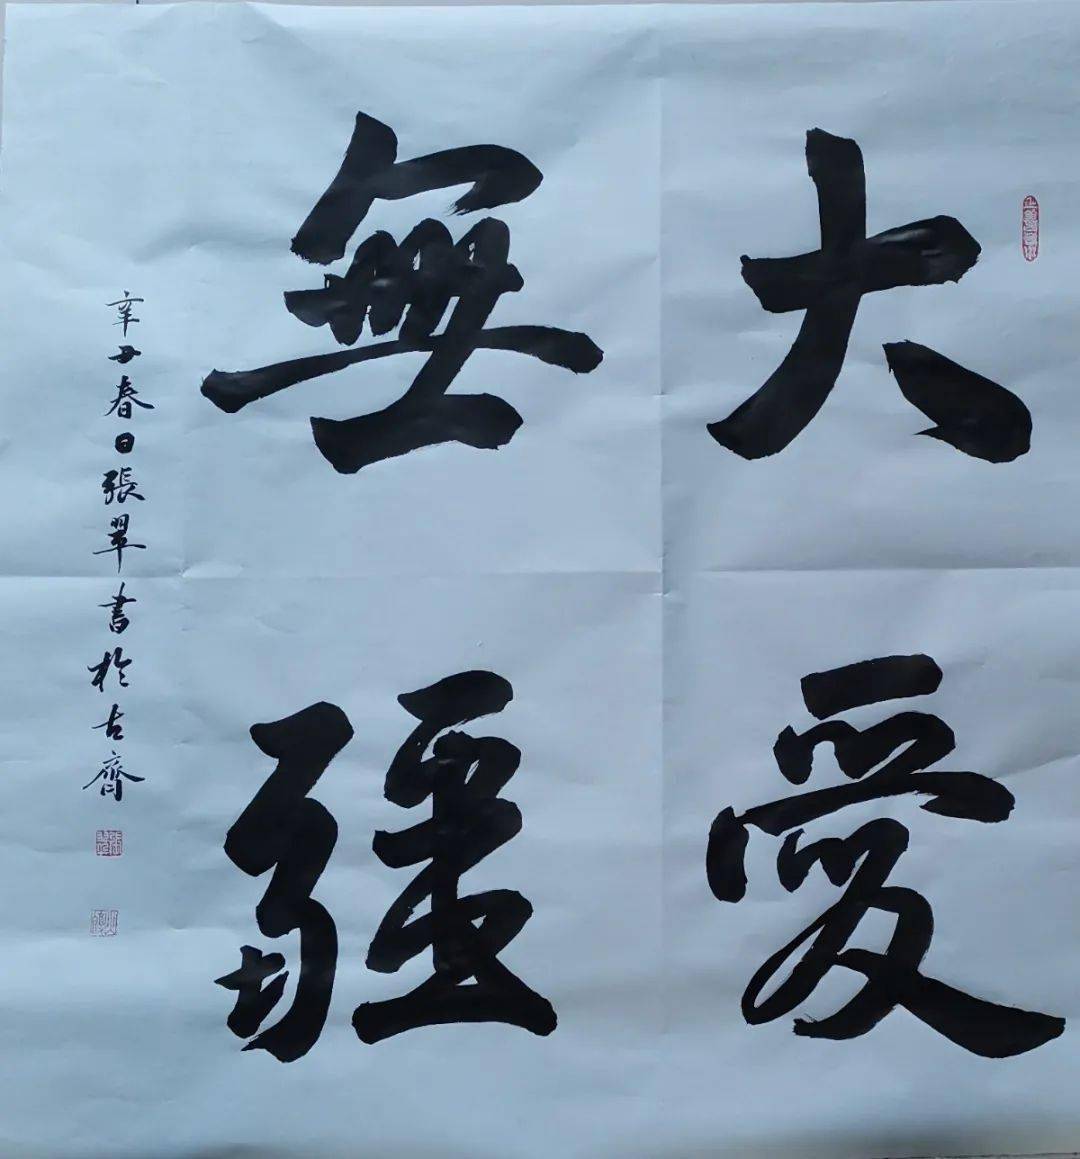 大愛
無疆
辛丑春日張翠書於古齋